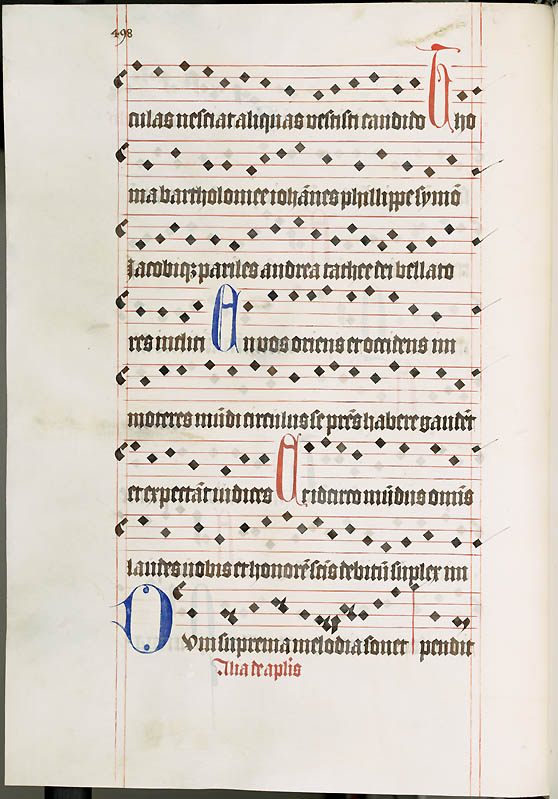 498
culas nesciat aliquas vestisti candido Tho
ma bartholomee iohānes phillippe symō
Iacobiqꝫ pariles andrea tathee dei bellato
res incliti En vos oriens et occidens im
moteres mūdi circulus se prēs habere gaudēt
et expectāt iudices Et idcirco mūdus omīs
laudes vobis et honorē scīs debitū suplex im
Dvm suprema melodia sonet pendit
Alia de aplis